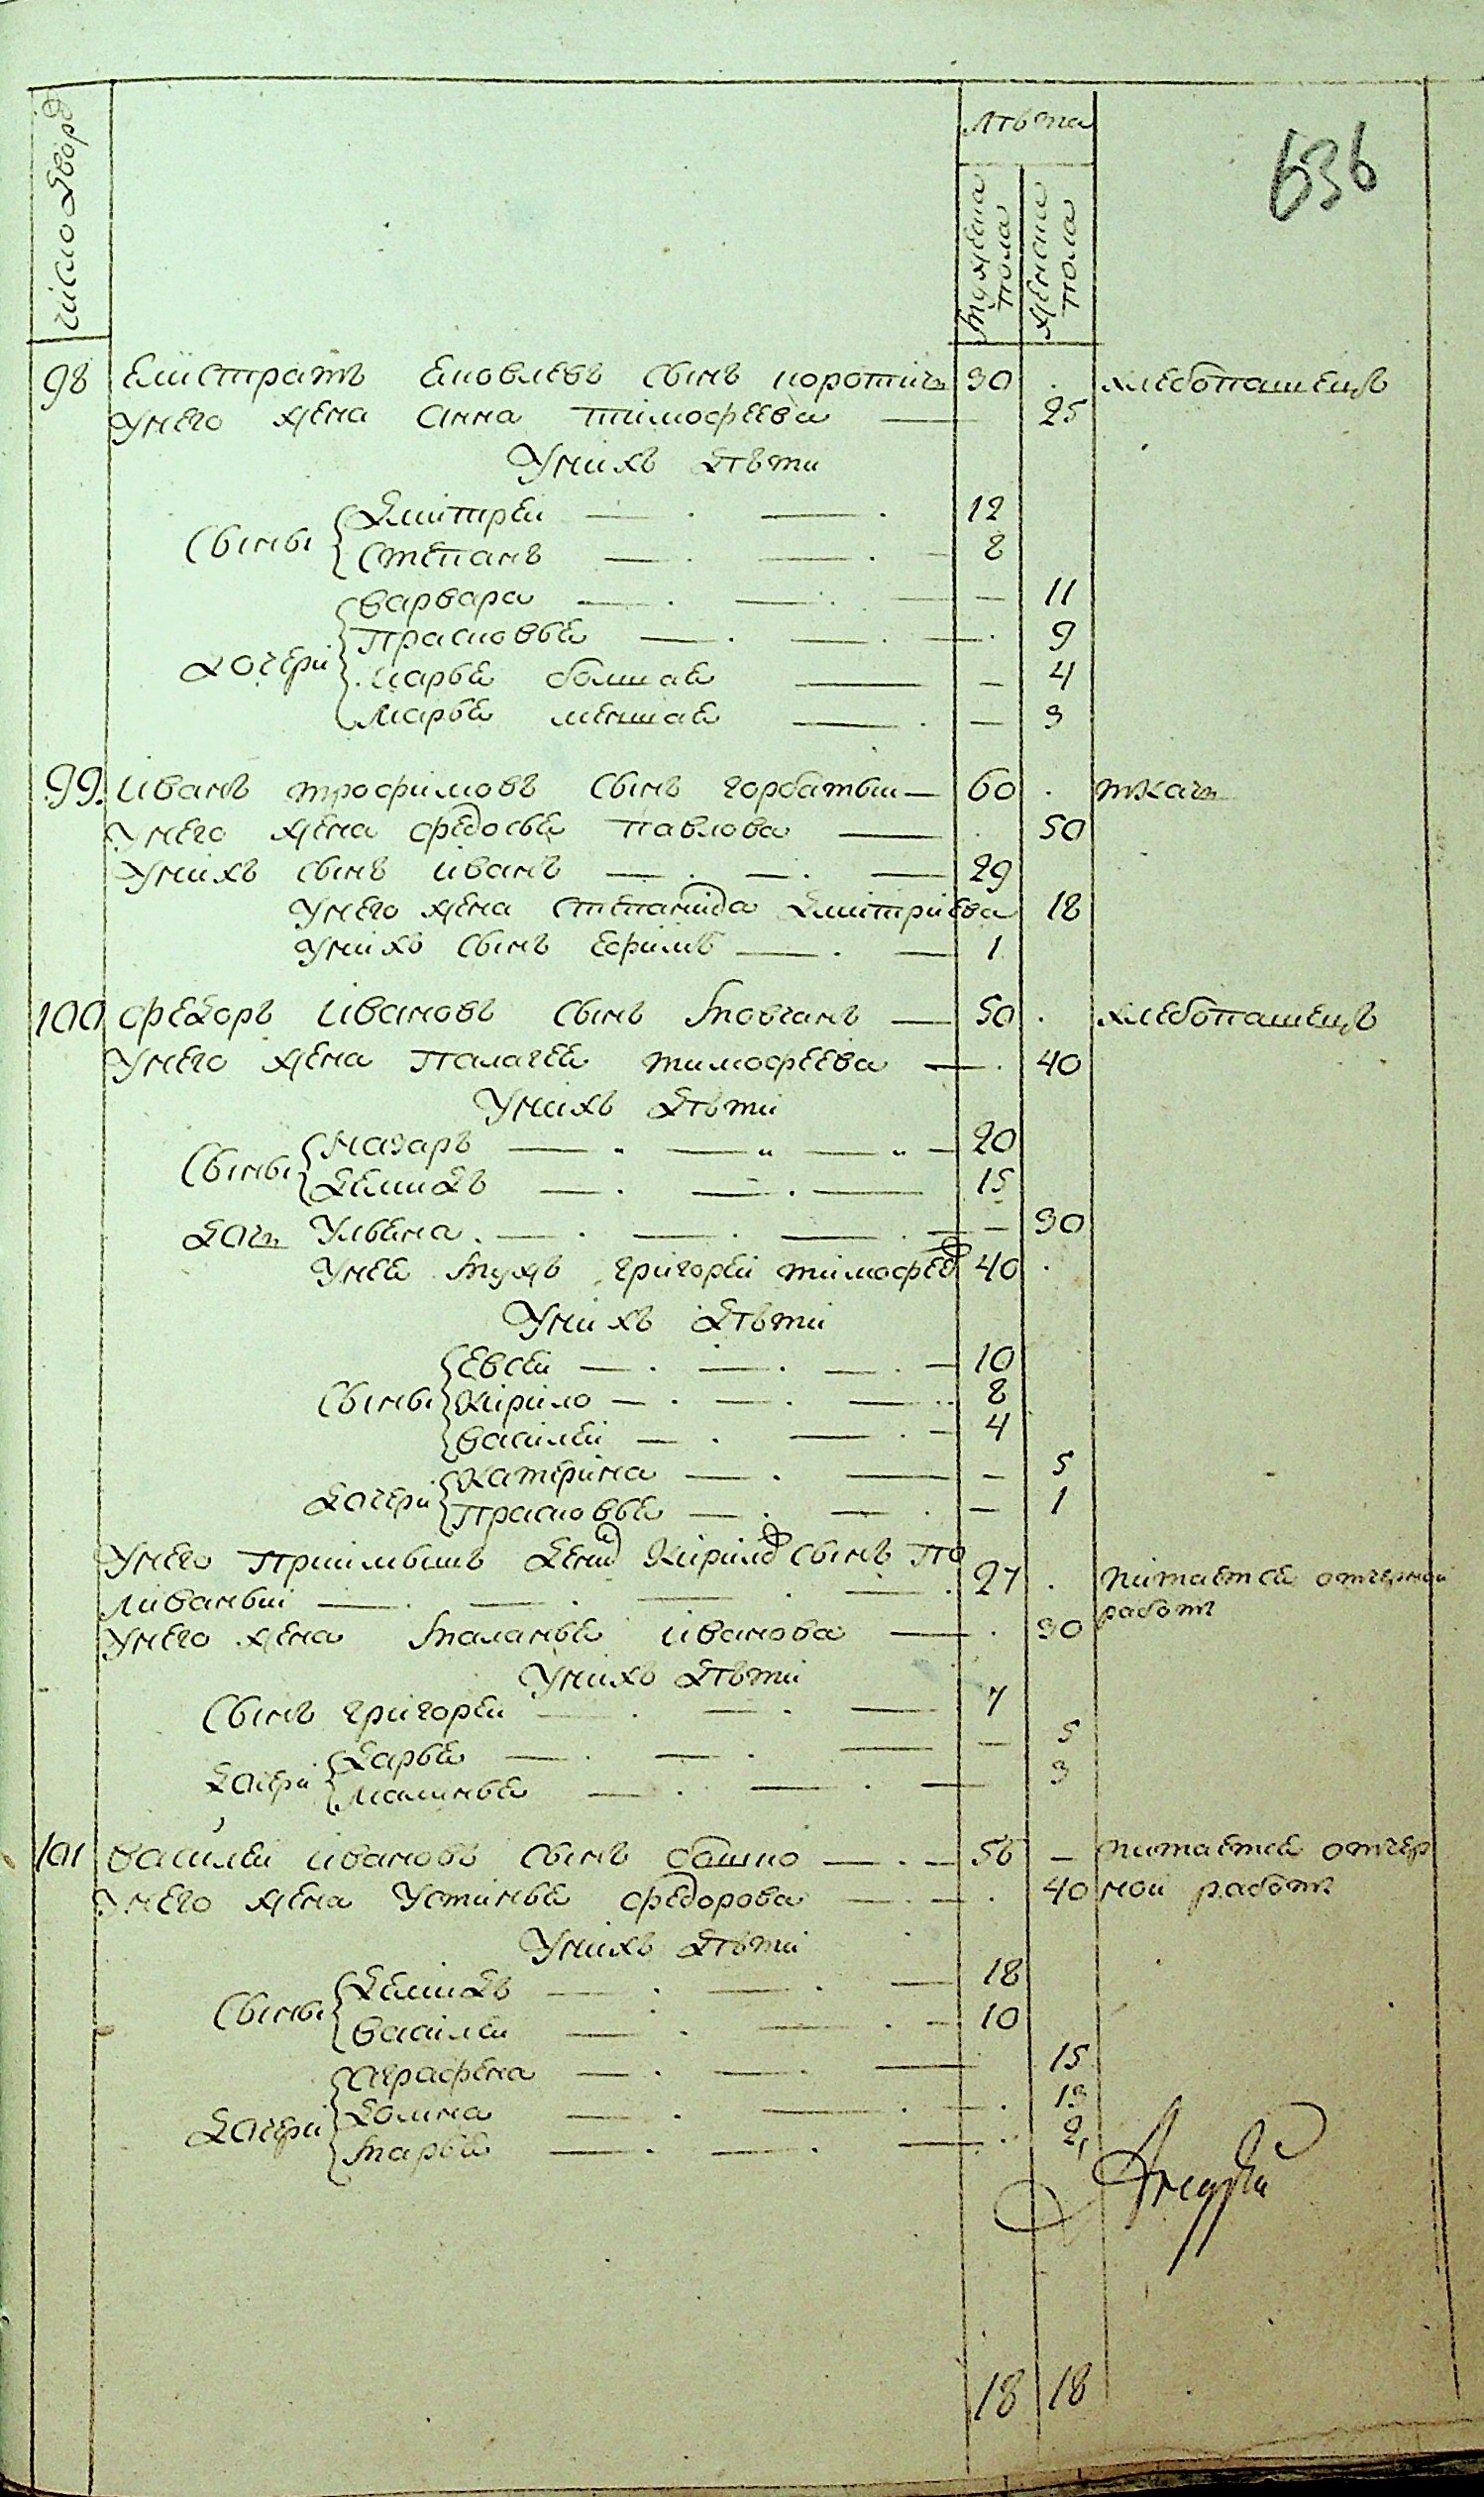 636
число дворъ
лѣта
мужеска пола
женска пола
98 Елистратъ Яковлевъ сынъ коротичъ 30 . хлебопашецъ
унего жена Анна тимофеева — 25
унихъ дѣти
сыны
Дмитрей — 12
Степанъ — 8
дочери
варвара — 11
Прасковья — 9
марья болшая — 4
марья меншая — 3
99. Иванъ трофимовъ сынъ горбатый — 60 . ткачь
унего жена федосья павлова — 50
унихъ сынъ иванъ — 29
унего жена степанида Дмитриева 18
унихъ сынъ ефимъ — 1
100 федоръ Ивановъ сынъ мовчанъ — 50 . хлебопашецъ
унего жена палагея тимофеева — 40
унихъ дѣти
сыны
назаръ — 20
Демидъ — 15
дочь Ульяна — 30
унея мужъ григорей тимофеев 40 .
унихъ дѣти
сыны
Евсей — 10
Кирило — 8
василей — 4
дочери
Катерина — 5
Прасковья — 1
унего приимышъ Денис Кирилов сынъ по
ливаный — 27 . питается отчерной работ
унего жена маланья иванова — 30
унихъ дѣти
сынъ григорей — 7
дочери
Дарья — 5
маланья — 3
101 василей ивановъ сынъ башко — 56 — питается отчер
унего жена Устинья федорова — 40 ной работ
унихъ дѣти
сыны
Демидъ — 18
василей — 10
дочери
аграфена — 15
Домна — 13
марья — 2
18 18